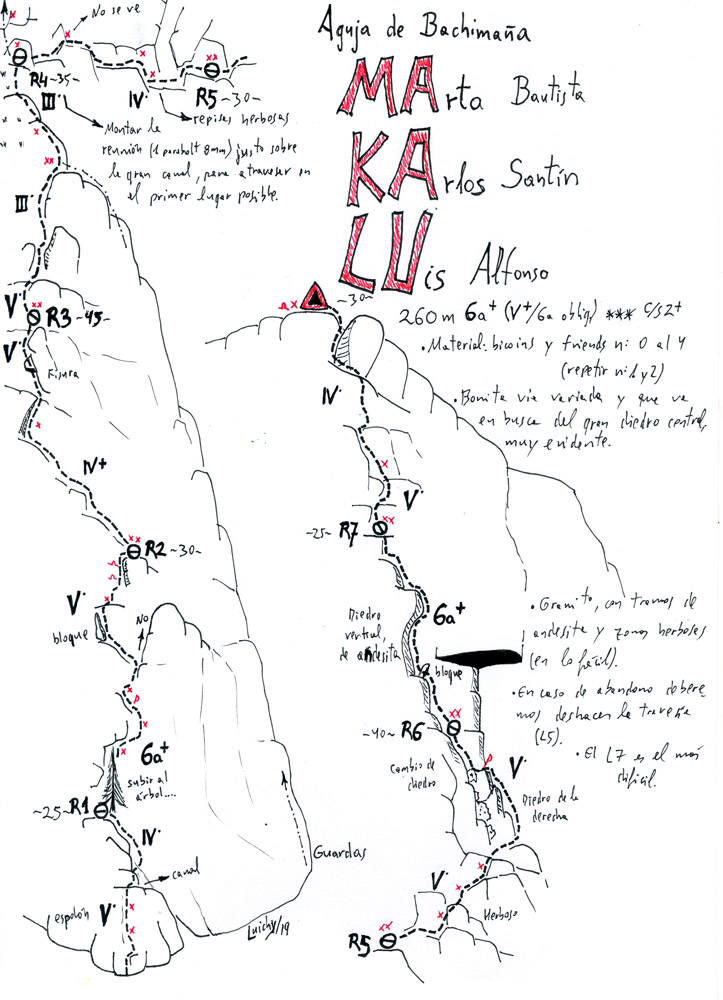 Aguja de Bachimaña
MArta Bautista
KArlos Santín
LUis Alfonso
260 m 6a+ (V+/6a oblig) *** C/S2+
• Material: bicoins y friends nº: 0 al 4
(repetir nº: 1 y 2)
• Bonita vía variada y que va
en busca del gran diedro central,
muy evidente.
No se ve
R4 ~35~
III·
IV·
R5 ~30~
repisas herbosas
Montar la
reunión (1 parabolt 8mm) justo sobre
la gran canal, para atravesar en
el primer lugar posible.
III·
V·
R3 ~45~
V·
Fisura
IV+
R2 ~30~
V·
bloque
No
6a+
subir al
árbol....
~25~ R1
IV·
canal
espolón V·
Guardas
Luichy/19
~30~
IV·
V·
~25~ R7
6a+
Diedro
vertical,
de andesita
bloque
~40~ R6
Cambio de
diedro
V·
Diedro de la
derecha
V·
Herboso
R5
• Granito, con tramos de
andesita y zonas herbosas
(en lo fácil).
• En caso de abandono debere-
mos deshacer la travesía
(L5).
• El L7 es el más
difícil.